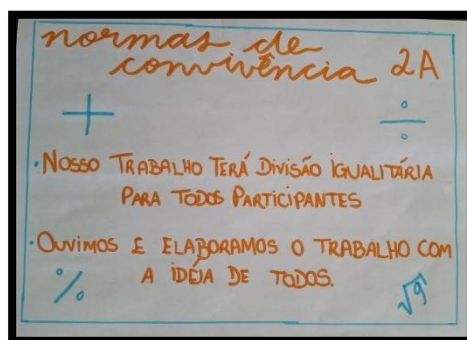 normas de
convivência 2A
+ ÷
• NOSSO TRABALHO TERÁ DIVISÃO IGUALITÁRIA
PARA TODOS PARTICIPANTES
• OUVIMOS E ELABORAMOS O TRABALHO COM
A IDÉIA DE TODOS.
% √9